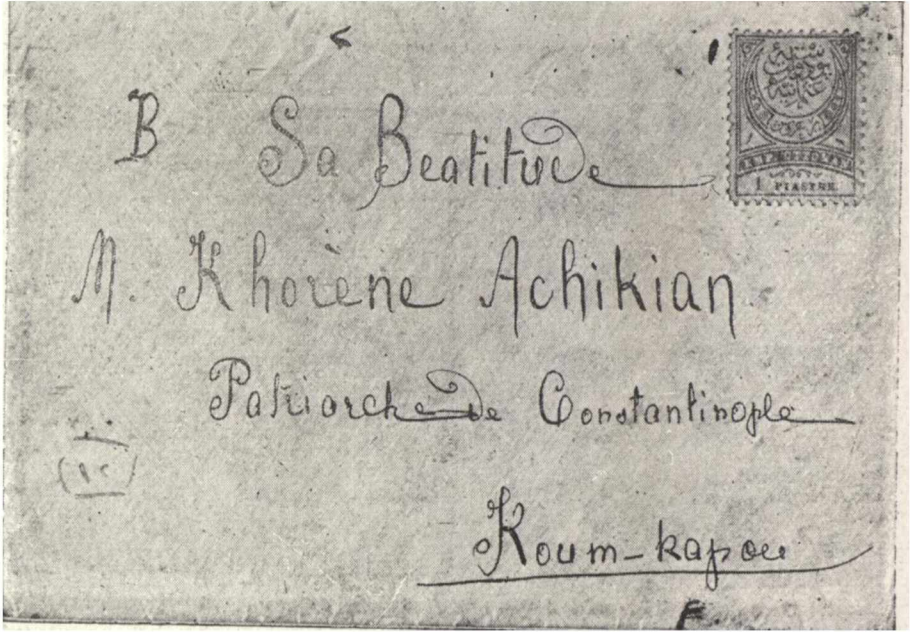 B Sa Beatitude
M. Khorène Achikian
Patriarche de Constantinople
Koum-kapou
1 PIASTRE